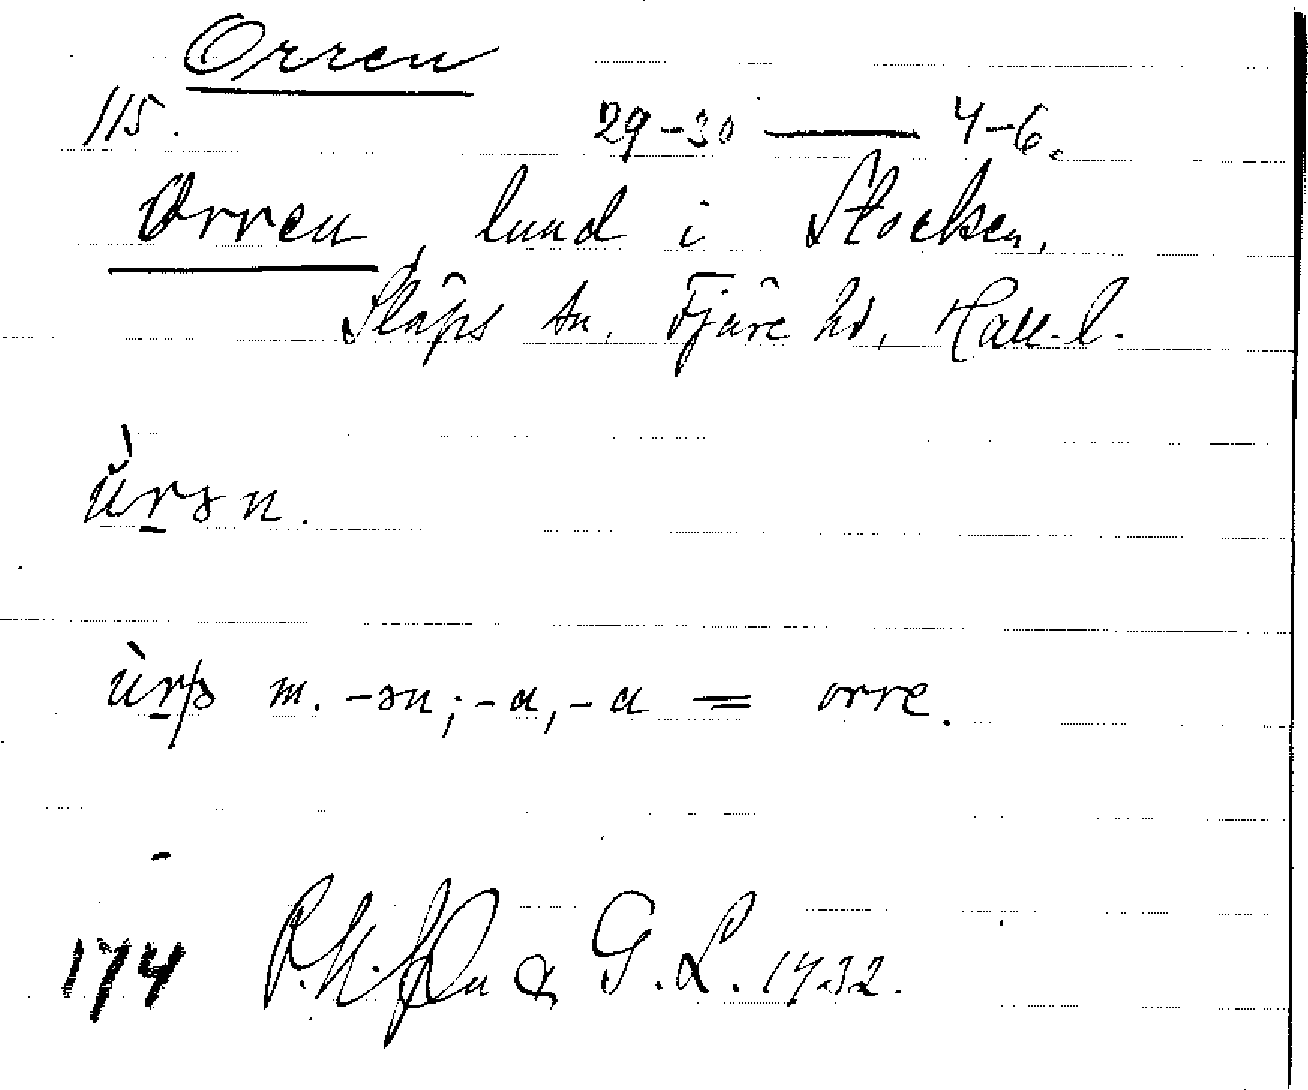 Orren
115. 29-30 — 4-6.
Orren, lund i Stocken,
Släps sn. Fjäre hd, Hall. l.
m. -ən; -a, -a = orre.
174 & G. L. 1932.